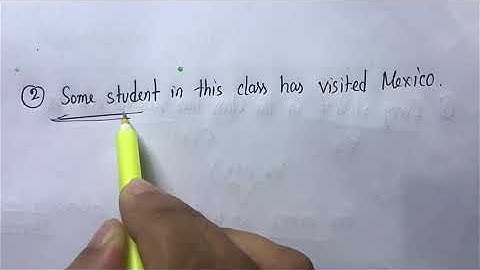 ② Some student in this class has visited Mexico.